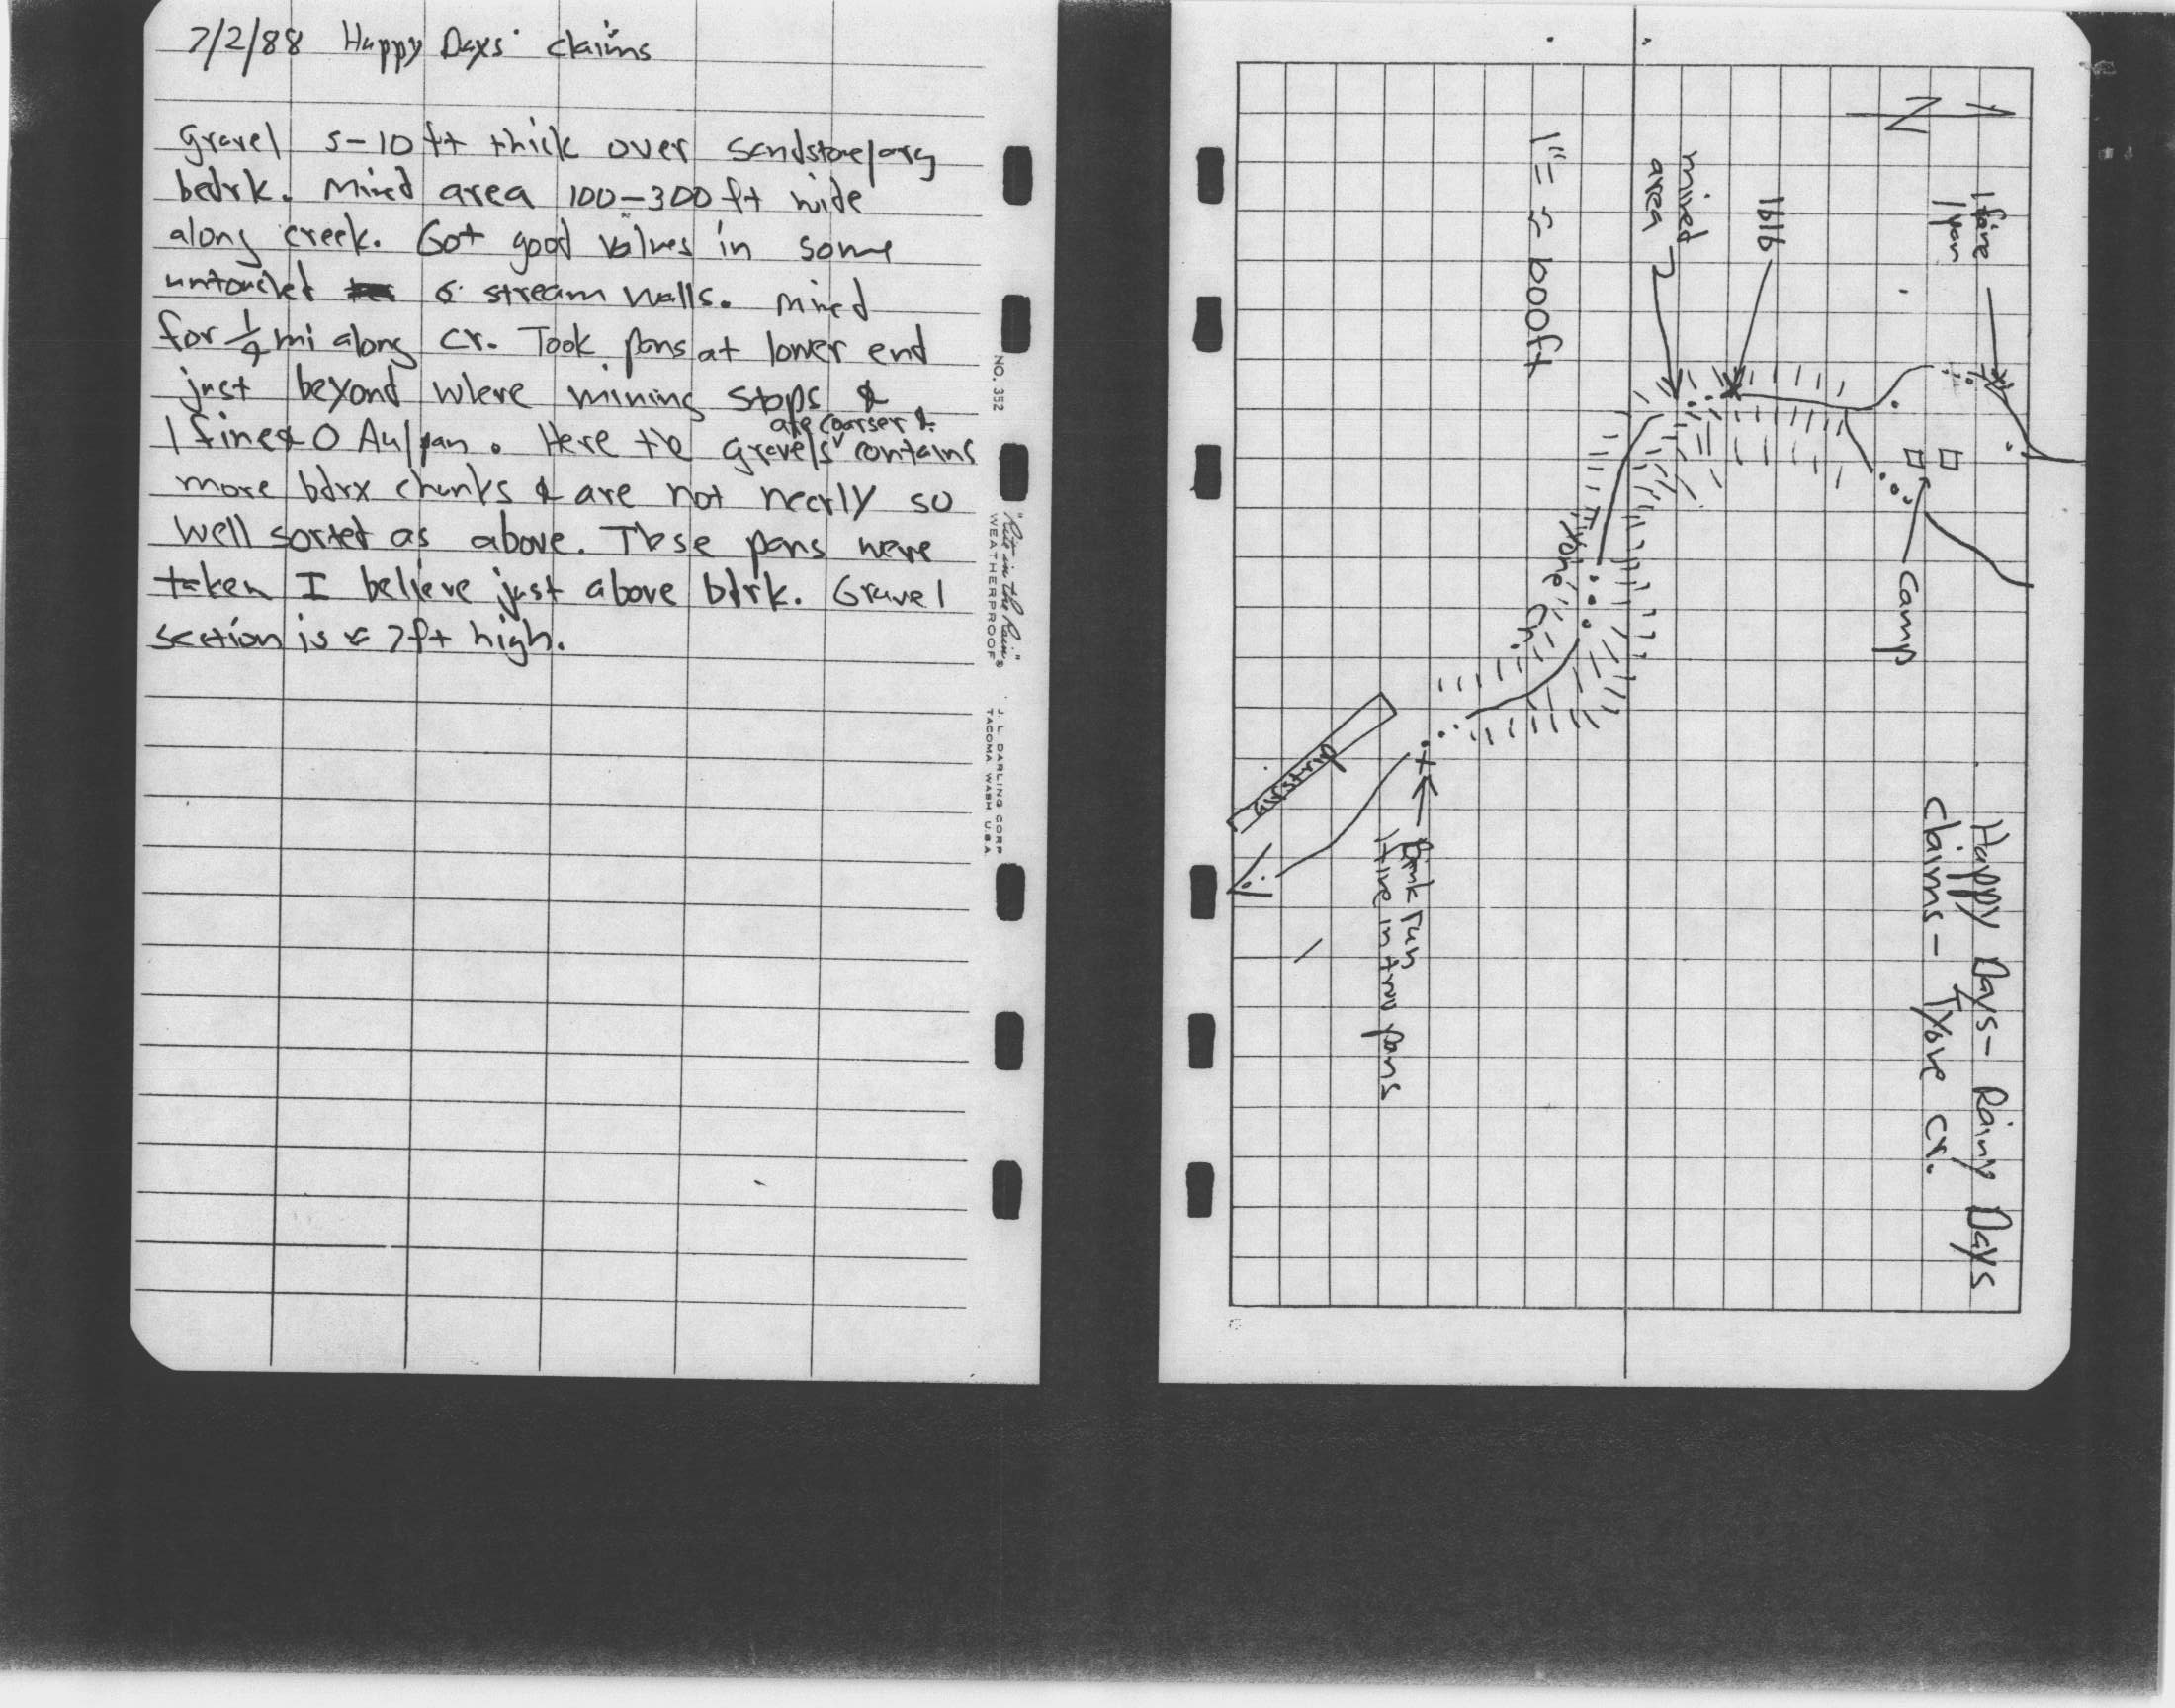 7/2/88 Happy Days' claims
gravel 5-10 ft thick over sandstone/arg
bedrk. Mined area 100-300 ft wide
along creek. Got good values in some
untouched stream walls. Mined
for 1/4 mi along cr. Took pans at lower end
just beyond where mining stops &
1 fine & 0 Au/pan. Here the gravels are coarser & contains
more bdrx chunks & are not nearly so
well sorted as above. These pans were
taken I believe just above bdrk. Gravel
section is ≈ 7ft high.
NO. 352
"Rite in the Rain"®
WEATHERPROOF
J. L. DARLING CORP
TACOMA WASH U.S.A.
Happy Days - Rainy Days
claims - Tyone cr.
N
1 fine
1 pan
1616
mined
area
1" = ≈ 600ft
Camp
Tyone Cr.
airstrip
Bank run
1 fine in two pans